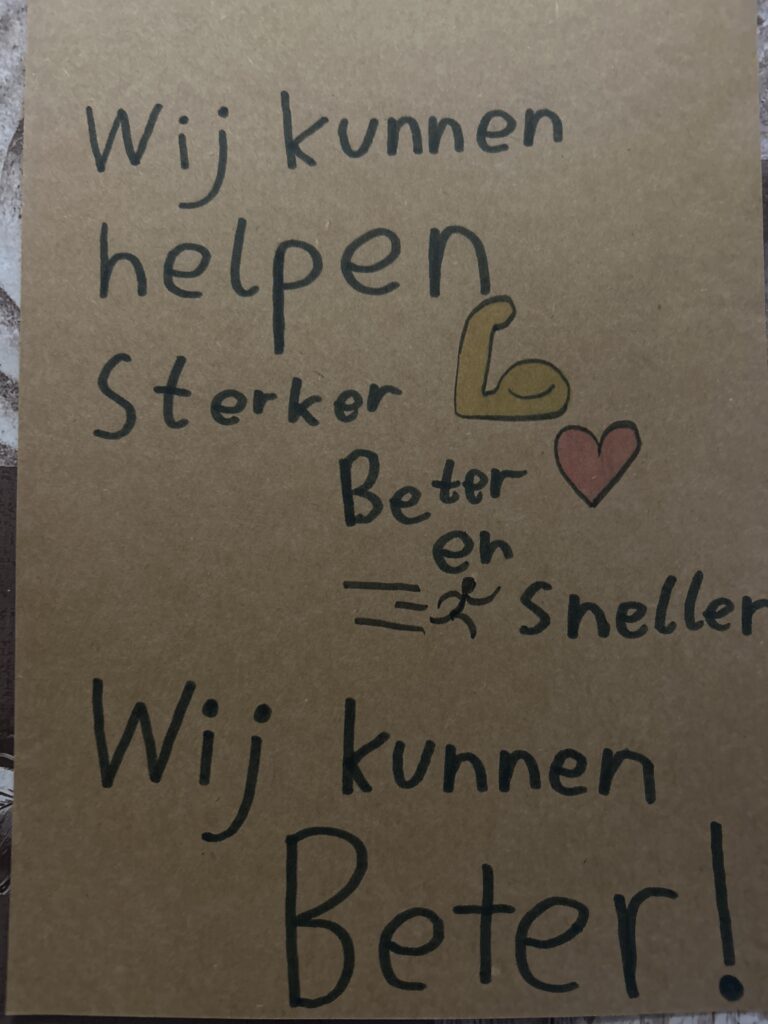 Wij kunnen
helpen
Sterker
Beter
en
Sneller
Wij kunnen
Beter!